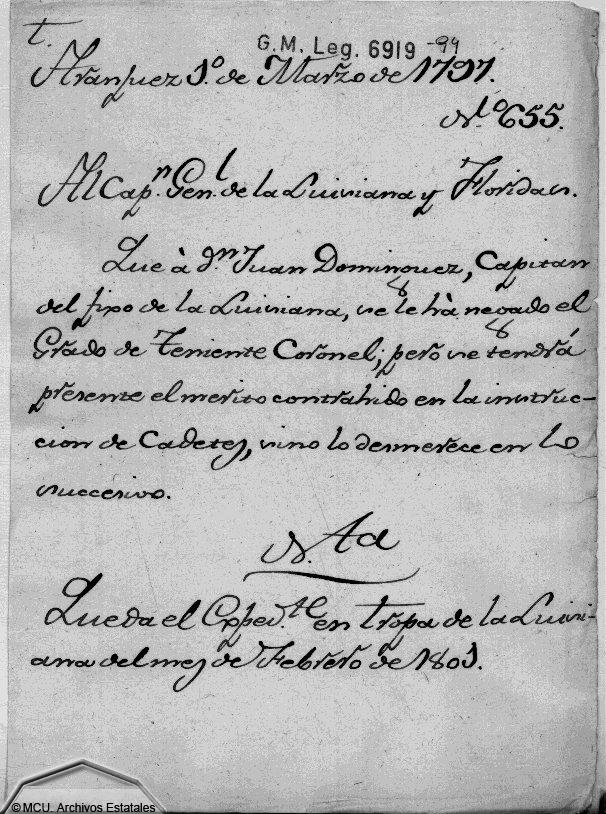 t.
G.M. Leg. 6919-99
Aranjuez 1.º de Marzo de 1797.
N.º 655.
Al Cap.n Gen.l de la Luisiana y Floridas.
Que à d.n Juan Dominguez, Capitan
del fixo de la Luisiana, se le hà negado el
Grado de Teniente Coronel; pero se tendrá
presente el merito contrahido en la instruc-
cion de Cadetes, sino lo desmerece en lo
succesivo.
N.ta
Queda el Exped.te en tropa de la Luisi-
ana del mes de Febrero de 1801.
© MCU. Archivos Estatales